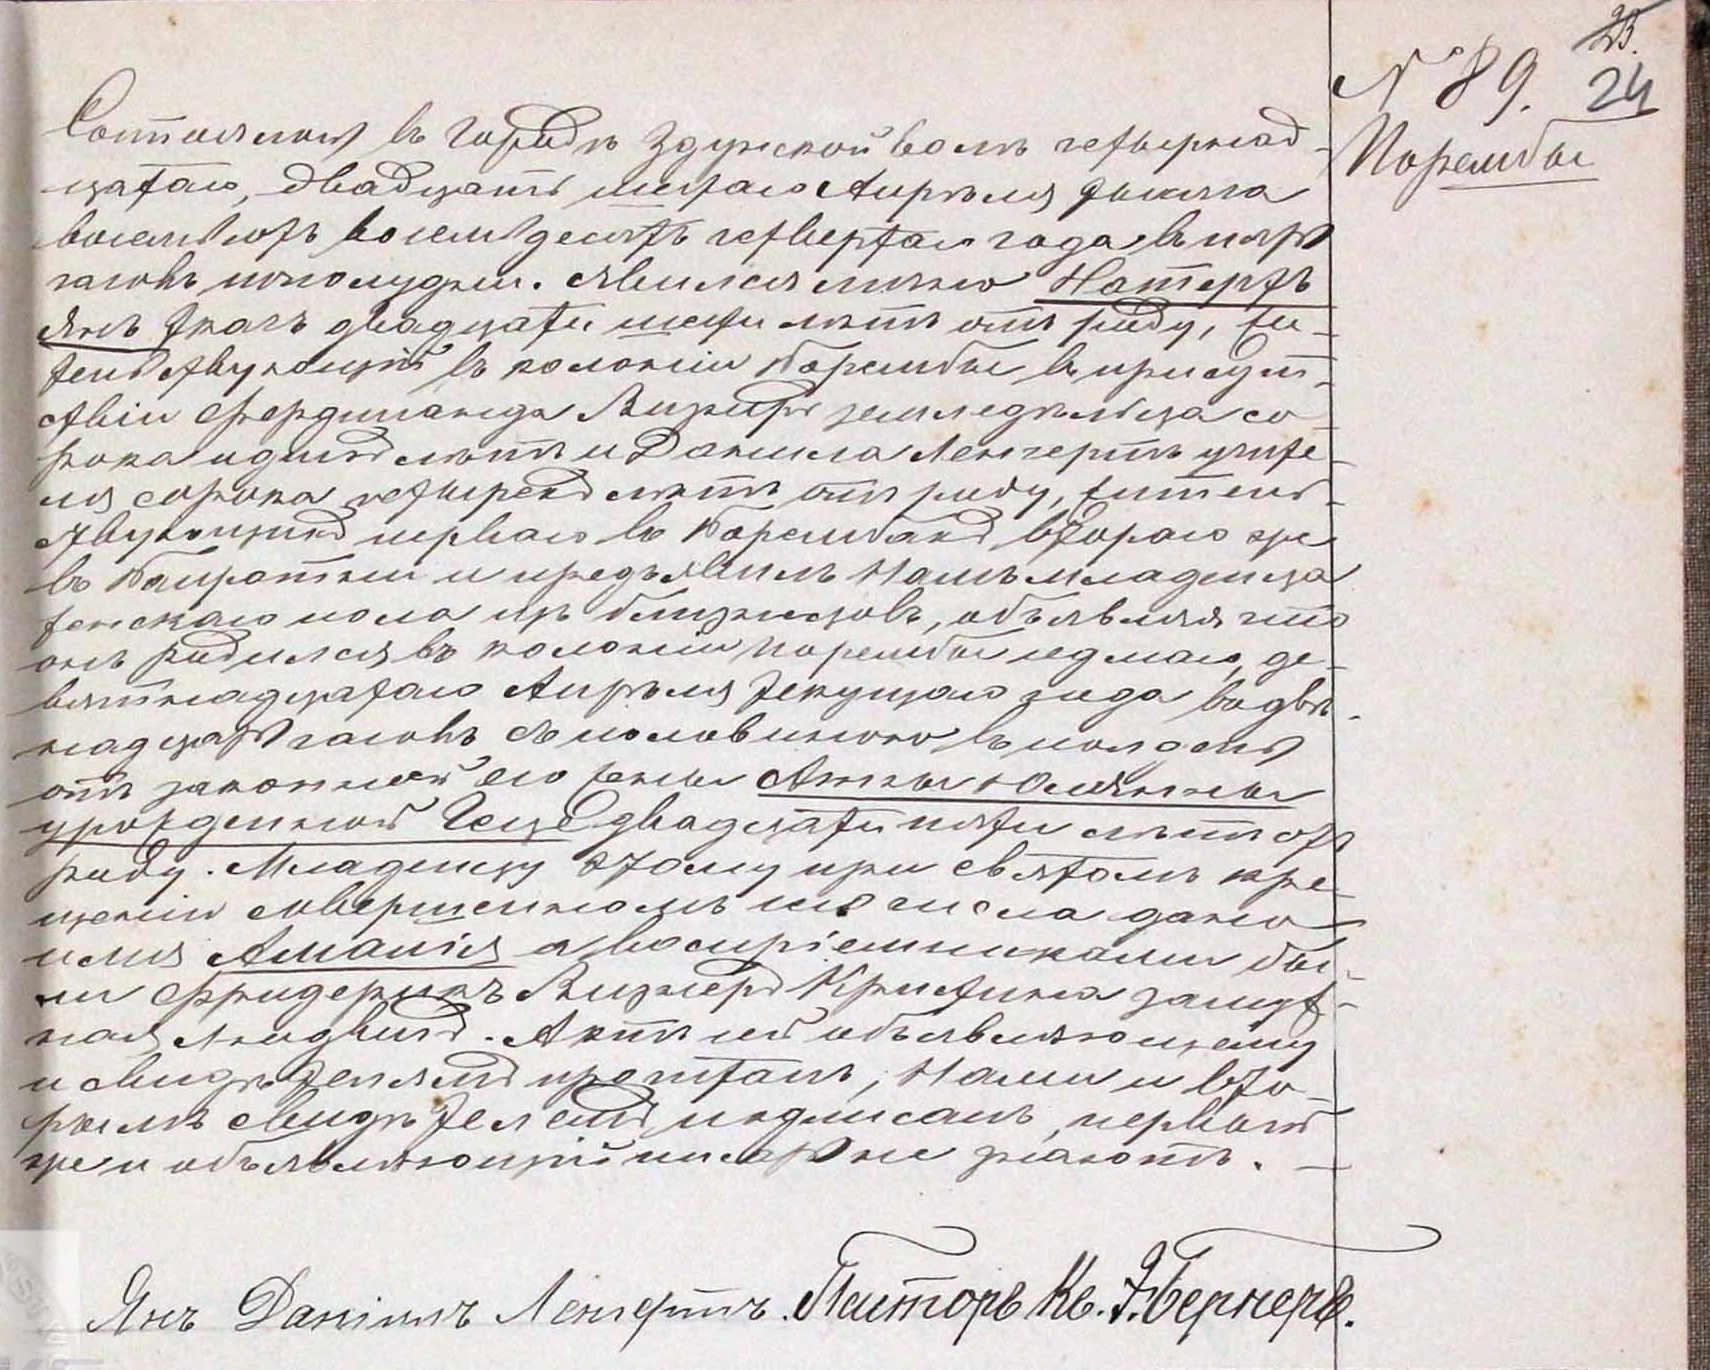 23.
24
№ 89.
Порембы
Состоялось въ городѣ Здунской волѣ четырнад-
цатаго, двадцать шестаго Апрѣля тысяча
восемьсотъ восемьдесятъ четвертаго года въ пять
часовъ пополудни. Явился лично
Янъ ткачъ двадцати шести лѣтъ отъ роду, жи-
тельствующій въ колоніи Порембы въ присут-
ствіи Фердинанда земледѣльца со-
рока одного лѣтъ и Данiила учите-
ля сорока четырехъ лѣтъ отъ роду, житель-
ствующихъ первого въ Порембахъ втораго же
въ и предъявилъ Намъ младенца
женскаго пола изъ близнецовъ, объявляя что
онъ родился въ колоніи Порембы седмаго, де-
вятнадцатаго Апрѣля текущаго года въ двѣ-
надцать часовъ съ половиною въ полдень
отъ законной его жены Анны Юлянны
урожденной двадцати пяти лѣтъ отъ
роду. Младенцу этому при святомъ кре-
щеніи совершенномъ сего числа дано
имя Амалія а воспріемниками бы-
ли Фридерикъ Кристина замуж-
ная. Актъ сей объявляющему
и свидѣтелямъ прочитанъ, Нами и вто-
рымъ свидѣтелемъ подписанъ, первый
же и объявляющій писать не знаютъ. —
Янъ Данiилъ Пасторъ Кс. Э. Бернеръ.